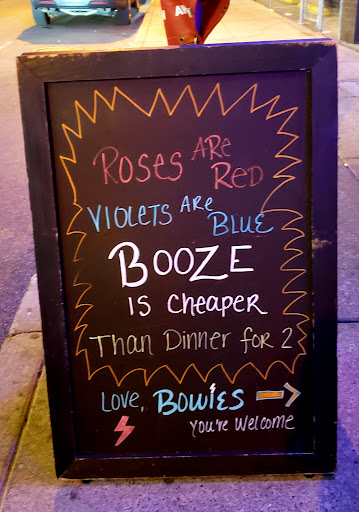 Roses ARe Red
Violets ARe Blue
BOOZE
is cheaper
Than Dinner for 2
Love, Bowies
You're Welcome